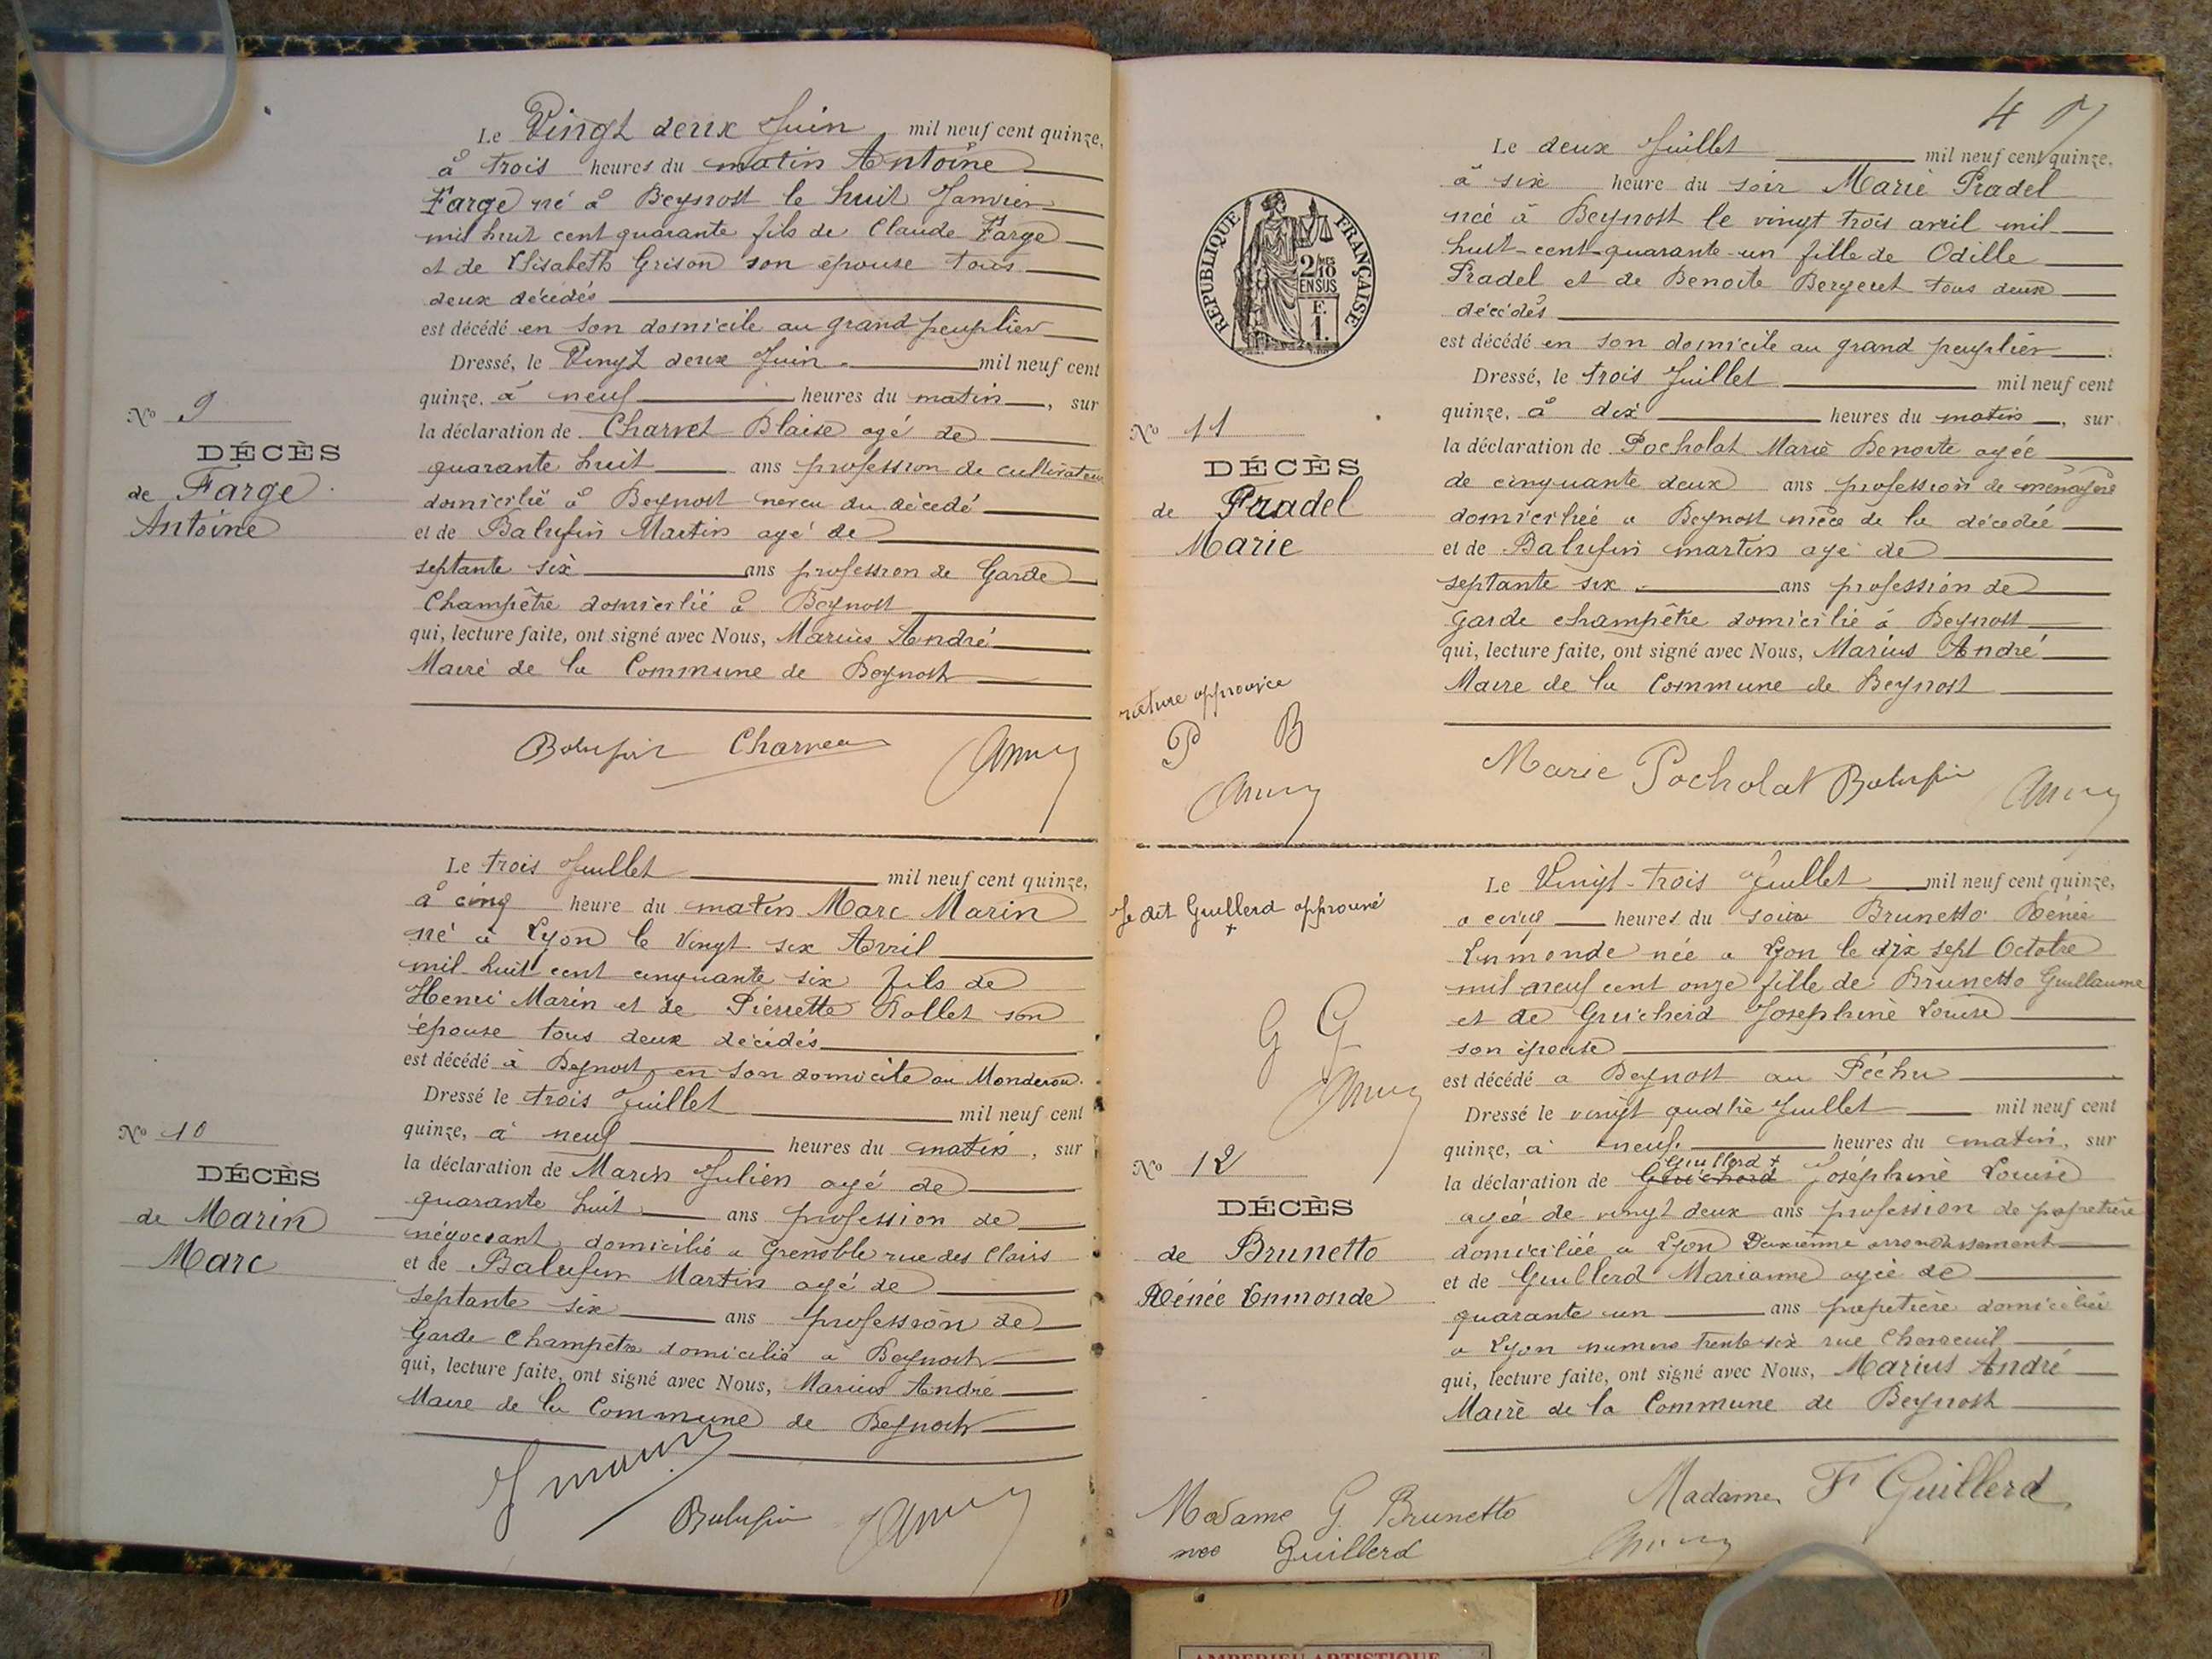 Le Vingt deux Juin mil neuf cent quinze,
à trois heures du matin Antoine
Farge né à Beynost le huit Janvier
mil huit cent quarante fils de Claude Farge
et de Elisabeth Grison son épouse tous
deux décédés
est décédé en son domicile au grand peuplier
Dressé, le Vingt deux Juin mil neuf cent
quinze, à neuf heures du matin, sur
No 9
DÉCÈS
de Farge
Antoine
la déclaration de Charvet Blaise agé de
quarante huit ans profession de cultivateur
domicilié à Beynost neveu du décédé
et de Balufin Martin agé de
septante six ans profession de Garde
Champêtre domicilié à Beynost
qui, lecture faite, ont signé avec Nous, Marius André
Maire de la Commune de Beynost
Balufin Charvet
Le trois Juillet mil neuf cent quinze,
à cinq heure du matin Marc Marin
né à Lyon le Vingt six Avril
mil huit cent cinquante six fils de
Henri Marin et de Pierrette Rollet son
épouse tous deux décédés
est décédé à Beynost en son domicile au Monderoux.
Dressé le trois Juillet mil neuf cent
quinze, à neuf heures du matin, sur
No 10
DÉCÈS
de Marin
Marc
la déclaration de Marin Julien agé de
quarante huit ans profession de
négociant domicilié a Grenoble rue des Clairs
et de Balufin Martin agé de
septante six ans profession de
Garde Champêtre domicilié a Beynost
qui, lecture faite, ont signé avec Nous, Marius André
Maire de la Commune de Beynost
J Marin
Balufin
4
Le deux Juillet mil neuf cent quinze.
à six heure du soir Marie Pradel
née à Beynost le vingt trois avril mil
huit-cent-quarante-un fille de Odille
Pradel et de Benoite Bergeret tous deux
décédés
est décédé en son domicile au grand peuplier
RÉPUBLIQUE FRANÇAISE
2/10 MES
EN SUS
F.
1.
Dressé, le trois Juillet mil neuf cent
quinze, à dix heures du matin, sur
No 11
DÉCÈS
de Pradel
Marie
la déclaration de Pocholat Marie Benoite agée
de cinquante deux ans profession de ménagère
domiciliée a Beynost nièce de la décédée
et de Balufin martin agé de
septante six ans profession de
garde champêtre domicilié à Beynost
qui, lecture faite, ont signé avec Nous, Marius André
Maire de la Commune de Beynost
rature approuvée
P B
Marie Pocholat Balufin
Le Vingt-trois Juillet mil neuf cent quinze,
a cinq heures du soir Brunetto Rénée
Enmonde née a Lyon le dix sept Octobre
mil neuf cent onze fille de Brunetto Guillaume
et de Guicherd Joséphine Louise
son épouse
est décédé a Beynost au Péchu
Dressé le vingt quatre Juillet mil neuf cent
quinze, à neuf heures du matin, sur
Je dit Guillerd approuvé
+
G G
No 12
DÉCÈS
de Brunetto
Rénée Enmonde
Guillerd +
la déclaration de Guicherd Joséphine Louise
agée de vingt deux ans profession de propretière
domiciliée a Lyon Deuxième arrondissement
et de Guillerd Marianne agée de
quarante un ans propetière domiciliée
a Lyon numero trente-six rue Chevreuil
qui, lecture faite, ont signé avec Nous, Marius André
Maire de la Commune de Beynost
Madame G. Brunetto
née Guillerd
Madame F Guillerd
AMBERIEU ARTISTIQUE